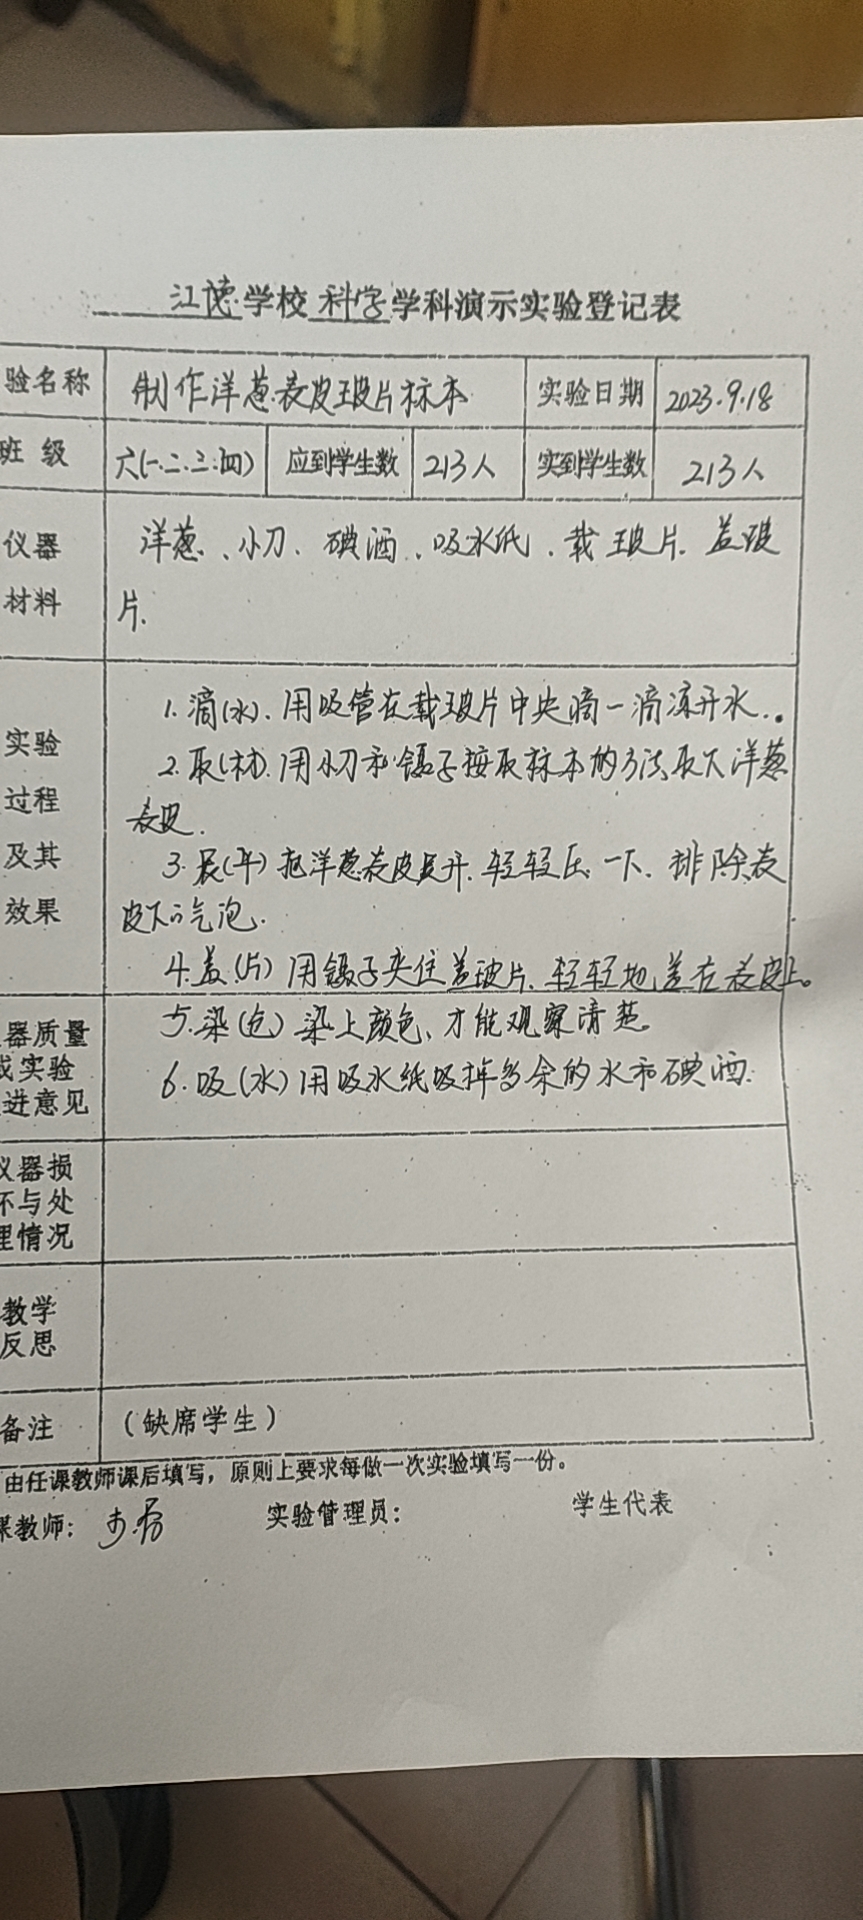 江德学校科学学科演示实验登记表
验名称 制作洋葱表皮玻片标本 实验日期 2023.9.18
班级 六(一.二.三.四) 应到学生数 213人 实到学生数 213人
仪器 洋葱、小刀、碘酒、吸水纸、载玻片、盖玻
材料 片.
1.滴(水).用吸管在载玻片中央滴一滴凉开水..
实验
2.取(材).用小刀和镊子按取标本的方法取下洋葱
过程
表皮.
及其
3.展(平)把洋葱表皮展开.轻轻压一下、排除表
效果
皮下的气泡.
4.盖(片)用镊子夹住盖玻片.轻轻地盖在表皮上。
器质量 5.染(色)染上颜色、才能观察清楚。
或实验
6.吸(水)用吸水纸吸掉多余的水和碘酒.
进意见
仪器损
坏与处
理情况
教学
反思
备注 (缺席学生)
由任课教师课后填写，原则上要求每做一次实验填写一份。
课教师: 实验管理员: 学生代表